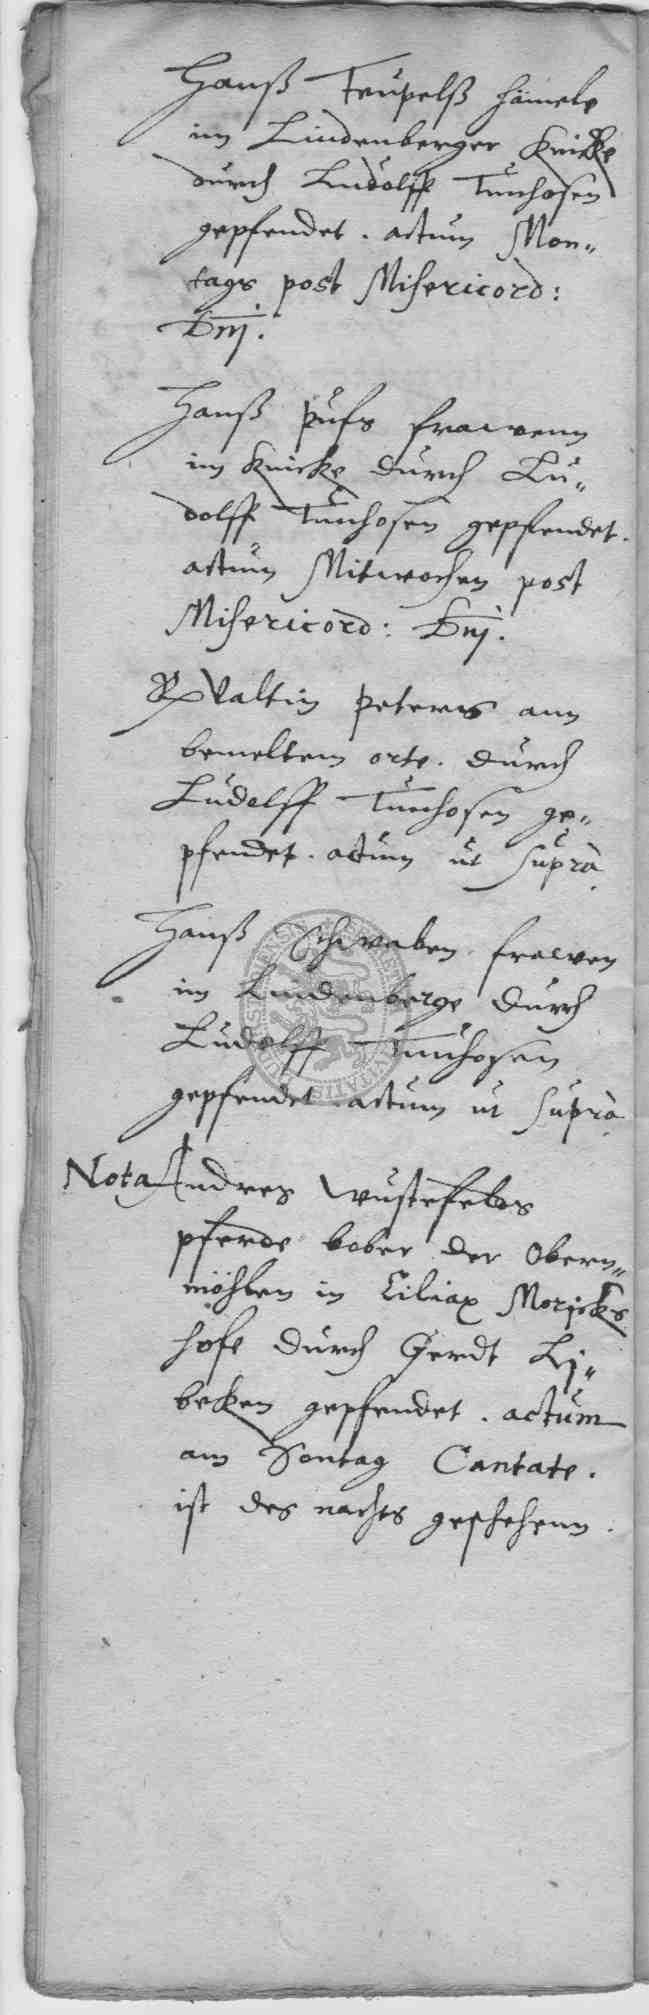 Hanß Teupelß hämele
im Lindenberger Knicke
durch Ludolff Tunhosen
gepfendet. actum Mon„
tags post Misericord:
Dnj.
Hanß Pufs frawenn
im Knicke durch Lu„
dolff Tunhosen gepfendet.
actum Mitwochen post
Misericord: Dnj.
Valtin Peters ann
bemeltem orte. durch
Ludolff Tunhosen ge„
pfendet. actum ut supra.
Hanß Schwaben frawen
im Lindenberge durch
Ludolff Tunhosen
gepfendet. actum ut supra
Nota Andres Wustefelds
pferde bober der Obern„
möhlen in Ciliax Morickes
hofe durch Gerdt Lj„
beken gepfendet. actum
am Sontag Cantate.
ist des nachts geschehenn.